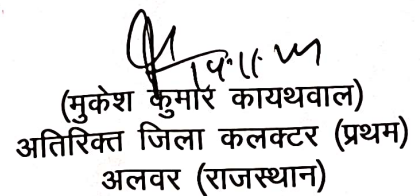 (मुकेश कुमार कायथवाल)
अतिरिक्त जिला कलक्टर (प्रथम)
अलवर (राजस्थान)